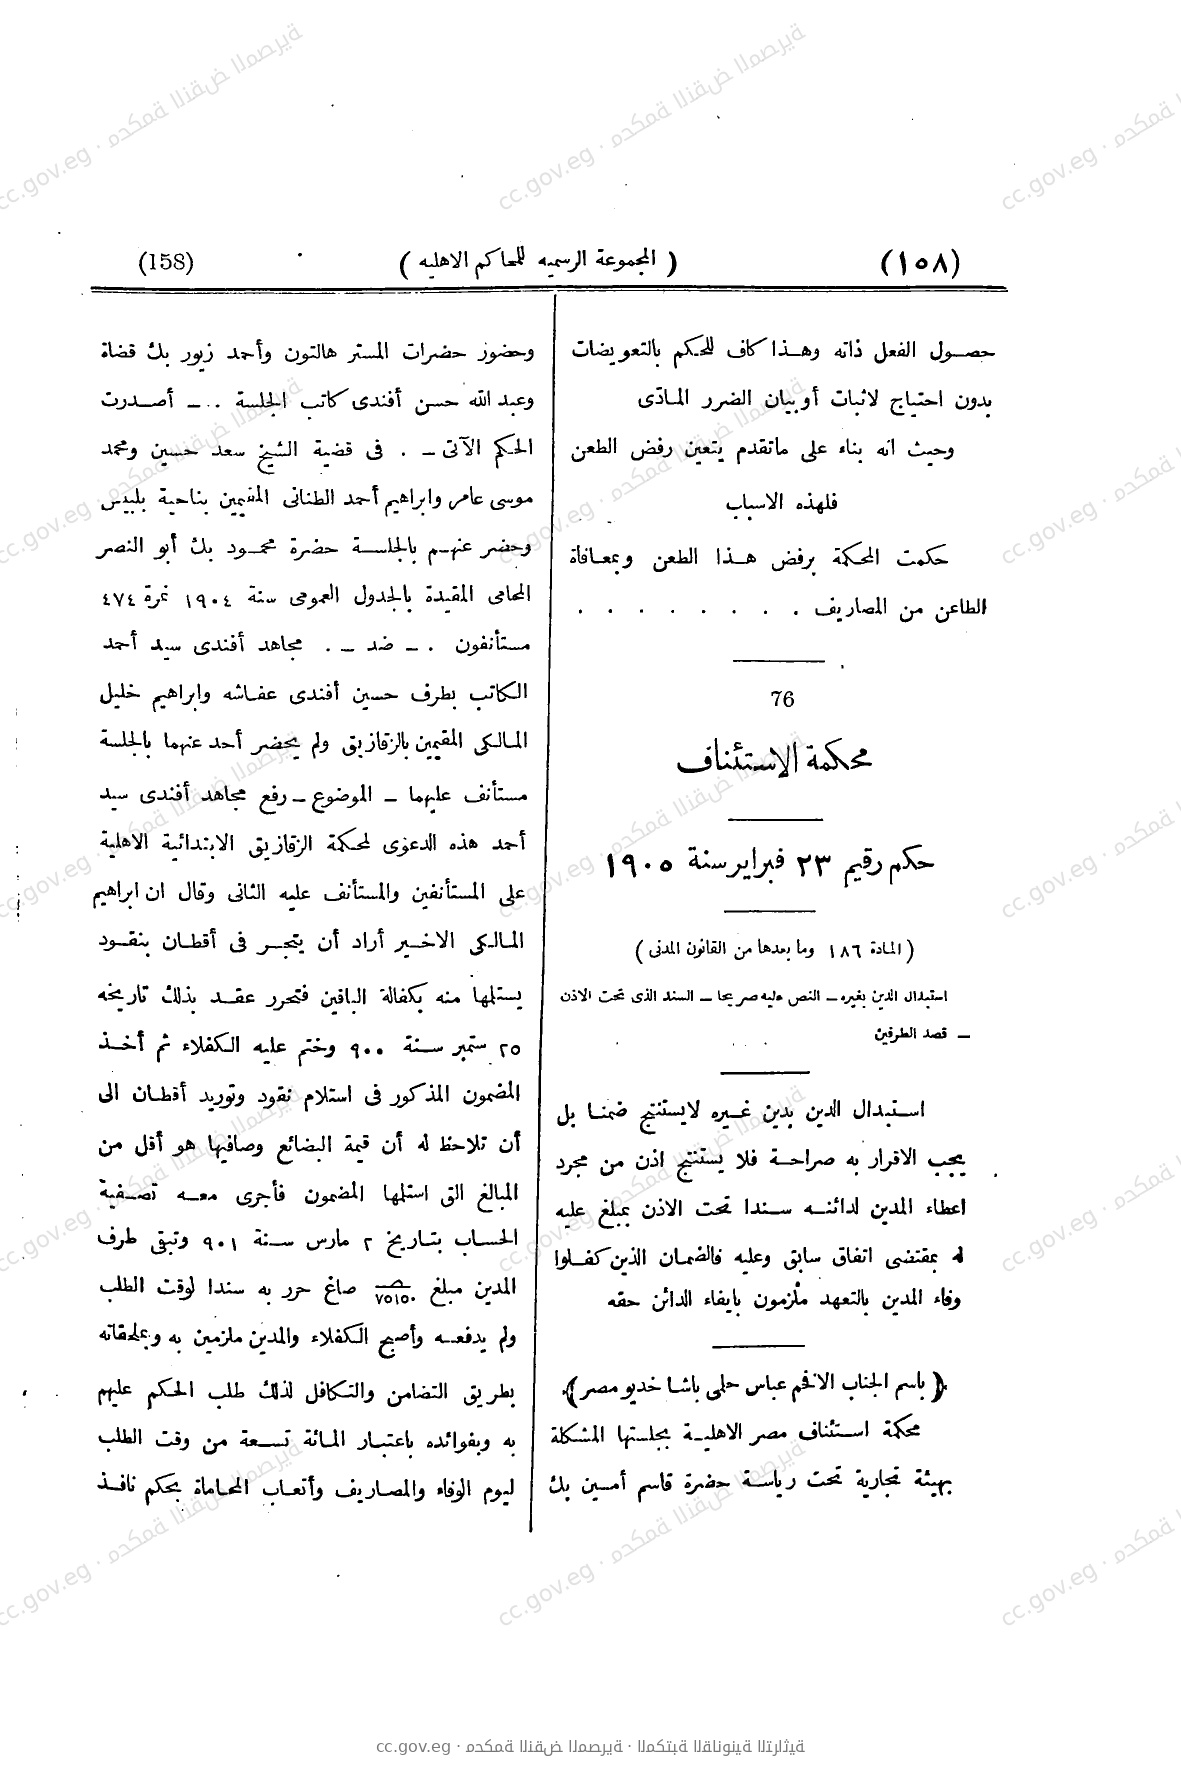 (١٥٨)
( المجموعة الرسميه للمحاكم الاهليه )
(158)
حصـول الفعل ذاته وهـذا كاف للحكم بالتعويضات
بدون احتياج لاثبات أو بيان الضرر المـادّى
وحيث انه بناء على ماتقدم يتعين رفض الطعن
فلهذه الاسباب
حكمت المحكمة برفض هـذا الطعن وبمعـافاة
الطاعن من المصاريف . . . . . . . .
76
محكمة الاستئناف
حكم رقيم ٢٣ فبراير سنة ١٩٠٥
( المـادة ١٨٦ وما بعدها من القانون المدنى )
استبدال الدين بغيره – النص عليه صريحا – السند الذى تحت الاذن
– قصد الطرفين
اسـتبدال الدين بدين غـيره لايستنتج ضمنـا بل
يجب الاقرار به صراحـة فلا يستنتج اذن من مجرد
اعطاء المدين لدائنـه سـندا تحت الاذن بمبلغ عليه
له بمقتضى اتفاق سابق وعليه فالضمـان الذين كفـلوا
وفاء المدين بالتعهد ملزمون بايفاء الدائن حقه
( باسم الجناب الافخم عباس حلمى باشـا خديو مصر )
محكمة اسـتئناف مصر الاهليـة بجلستها المشكلة
بهيئة تجارية تحت رياسـة حضرة قاسم أمـين بك
وحضور حضرات المستر هالتون وأحمد زيور بك قضاة
وعبد الله حسن أفندى كاتب الجلسة .. – أصـدرت
الحكم الآتى – . فى قضية الشيخ سعد حسين ومحمد
موسى عامر وابراهيم أحمد الطنانى المقيمين بناحية بلبيس
وحضر عنهـم بالجلسـة حضرة محمـود بك أبو النصر
المحامى المقيدة بالجدول العمومى سنة ١٩٠٤ نمرة ٤٧٤
مستأنفون . – ضد – . مجاهد أفندى سيد أحمد
الكاتب بطرف حسين أفندى عفـاشه وابراهيم خليل
المـالكى المقيمين بالزقازيق ولم يحضر أحد عنهما بالجلسة
مستأنف عليهما – الموضوع – رفع مجاهد أفندى سيد
أحمد هذه الدعوى لمحكمة الزقازيق الابتدائية الاهلية
على المستأنفين والمستأنف عليه الثانى وقال ان ابراهيم
المـالكى الاخـير أراد أن يتجـر فى أقطـان بنقـود
يستلمها منه بكفالة الباقين فتحرر عقـد بذلك تاريخه
٢٥ ستمبر سـنة ٩٠٠ وختم عليه الكفلاء ثم أخـذ
المضمون المذكور فى استلام نقود وتوريد أقطـان الى
أن تلاحظ له أن قيمة البضائع وصافيها هو أقل من
المبالغ التى استلمها المضمون فأجرى معـه تصـفية
الحسـاب بتـاريخ ٢ مارس سـنة ٩٠١ وتبقى طرف
المدين مبلغ ٧٥١٥٠ صاغ حرر به سندا لوقت الطلب
ولم يدفعـه وأصبح الكفلاء والمدين ملزمين به وبملحقاته
بطريق التضامن والتكافل لذلك طلب الحكم عليهم
به وبفوائده باعتبار المـائة تسـعة من وقت الطلب
ليوم الوفاء والمصـاريف وأتعـاب المحـاماة بحكم نافـذ
cc.gov.eg · محكمة النقض المصرية · المكتبة القانونية التراثية